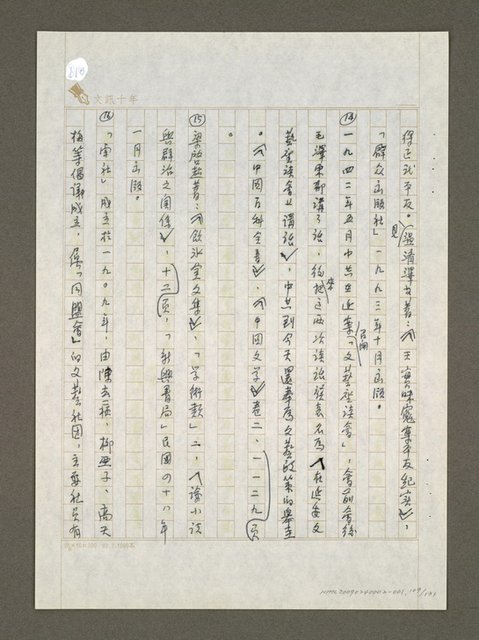 文訊十年
得區戰平反。(見溫濟澤等著:《天實味寃案平反紀實》,
「群众出版社」一九九三年十月出版。
⑭一九四二年五月中共在延安召開「文藝座談會」,會前會後
毛澤東都講了話,後來把這兩次談話發表名為《在延安文
藝座談會上講話》,中共到今天還奉為文藝政策的舉圭
。《中國百科全書》,《中國文學》卷二,一一二九頁
。
⑮梁啟超著:《飲冰室文集》,「學術類」二,《論小說
與群治之關係》,十二頁,「新興書局」民國四十八年
一月出版。
⑯「南社」成立於一九〇九年,由陳去病、柳亜子、高天
梅等倡議成立,係「同盟會」的文藝社団,主要社員有
NMTL20090240002-001, 109/121